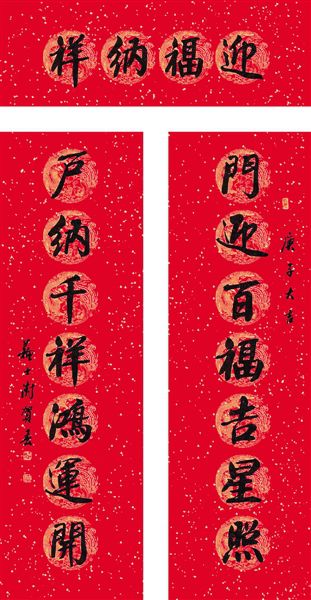 迎福納祥
門迎百福吉星照
庚子大吉
戶納千祥鴻運開
蘇士澍賀太